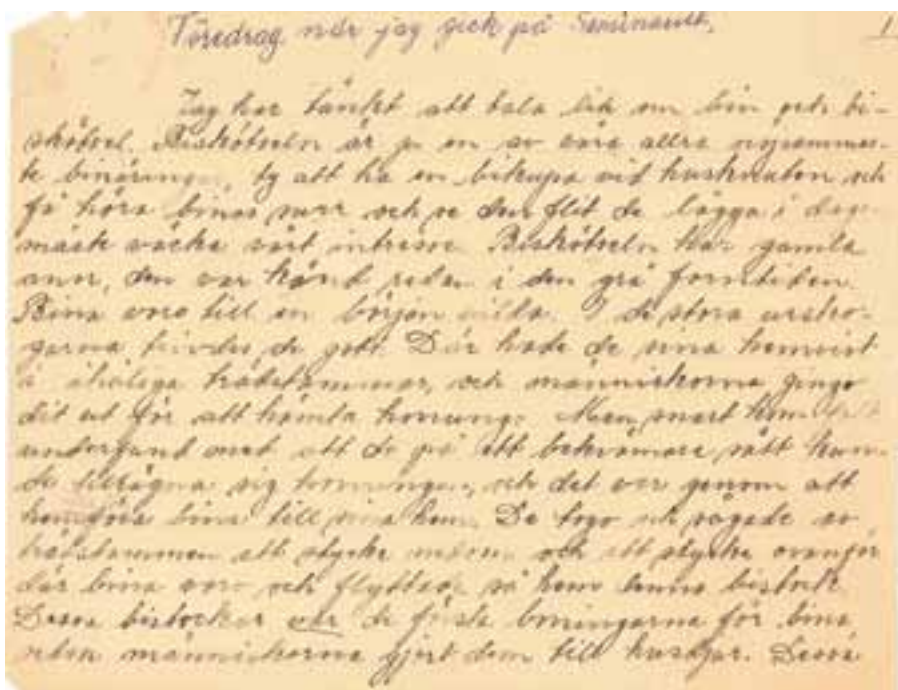 Föredrag när jag gick på Seminariet. 1
Jag har tänkt att tala lite om bin och bi-
skötsel. Biskötseln är ju en av våra allra
binäringar, ty att ha en bikupa vid husknuten och
få höra binas surr och se den flit de lägga i
måste väcka vårt intresse. Biskötseln har gamla
anor, den var känd redan i den grå forntiden.
Bina voro till en början vilda. I de stora ursko-
garna trivdes de gott. Där hade de sina hemvist
i ihåliga trädstammar, och människorna gingo
dit ut för att hämta honung. Men snart kom
underfund med att de på ett bekvämare sätt kun-
de tillägna sig honungen, och det var genom att
hemföra bina till sina hem. De togo och sågade av
trädstammen ett stycke nedom och ett stycke ovanför
där bina voro och flyttade så hem denna bistock.
Dessa bistockar var de första boningarna för bina
sedan människorna gjort dem till husdjur. Dessa